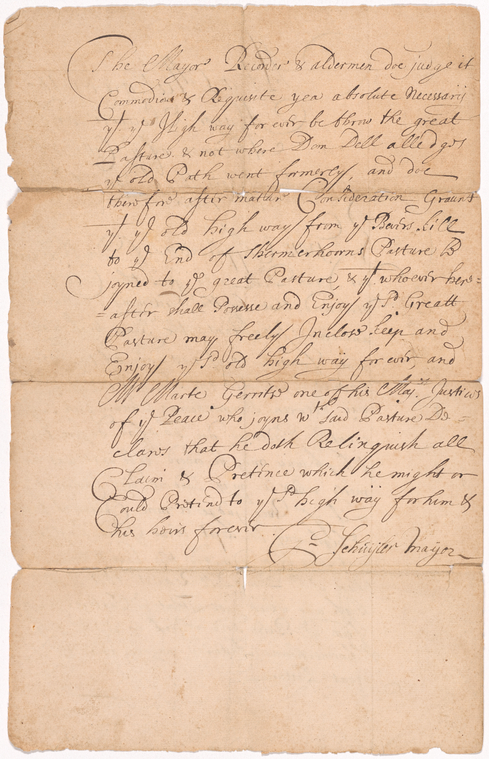 The Mayor Recorder & aldermen doe judge it
Commodious & Requisite yea absolute Necessary
yt ye High way for ever be throw the great
Pasture & not where Don Dell alledges
ye old Path went formerly, and doe
therefore after mature Consideration Graunt
yt ye old high way from ye Bevers kill
to ye End of Shermerhoorns Pasture be
joyned to ye great Pasture & yt whoever here=
=after shall Posesse and Enjoy ye sd Greatt
Pasture may freely Inclose keep and
Enjoy ye sd old high way for ever and
Mr Marte Gerritse one of his Majes Justices
of ye Peace who joyns wth said Pasture De=
clares that he doth Relinquish all
Claim & Pretence which he might or
Could Pretend to ye sd high way for him &
his heirs forever
Pr Schuyler Mayor